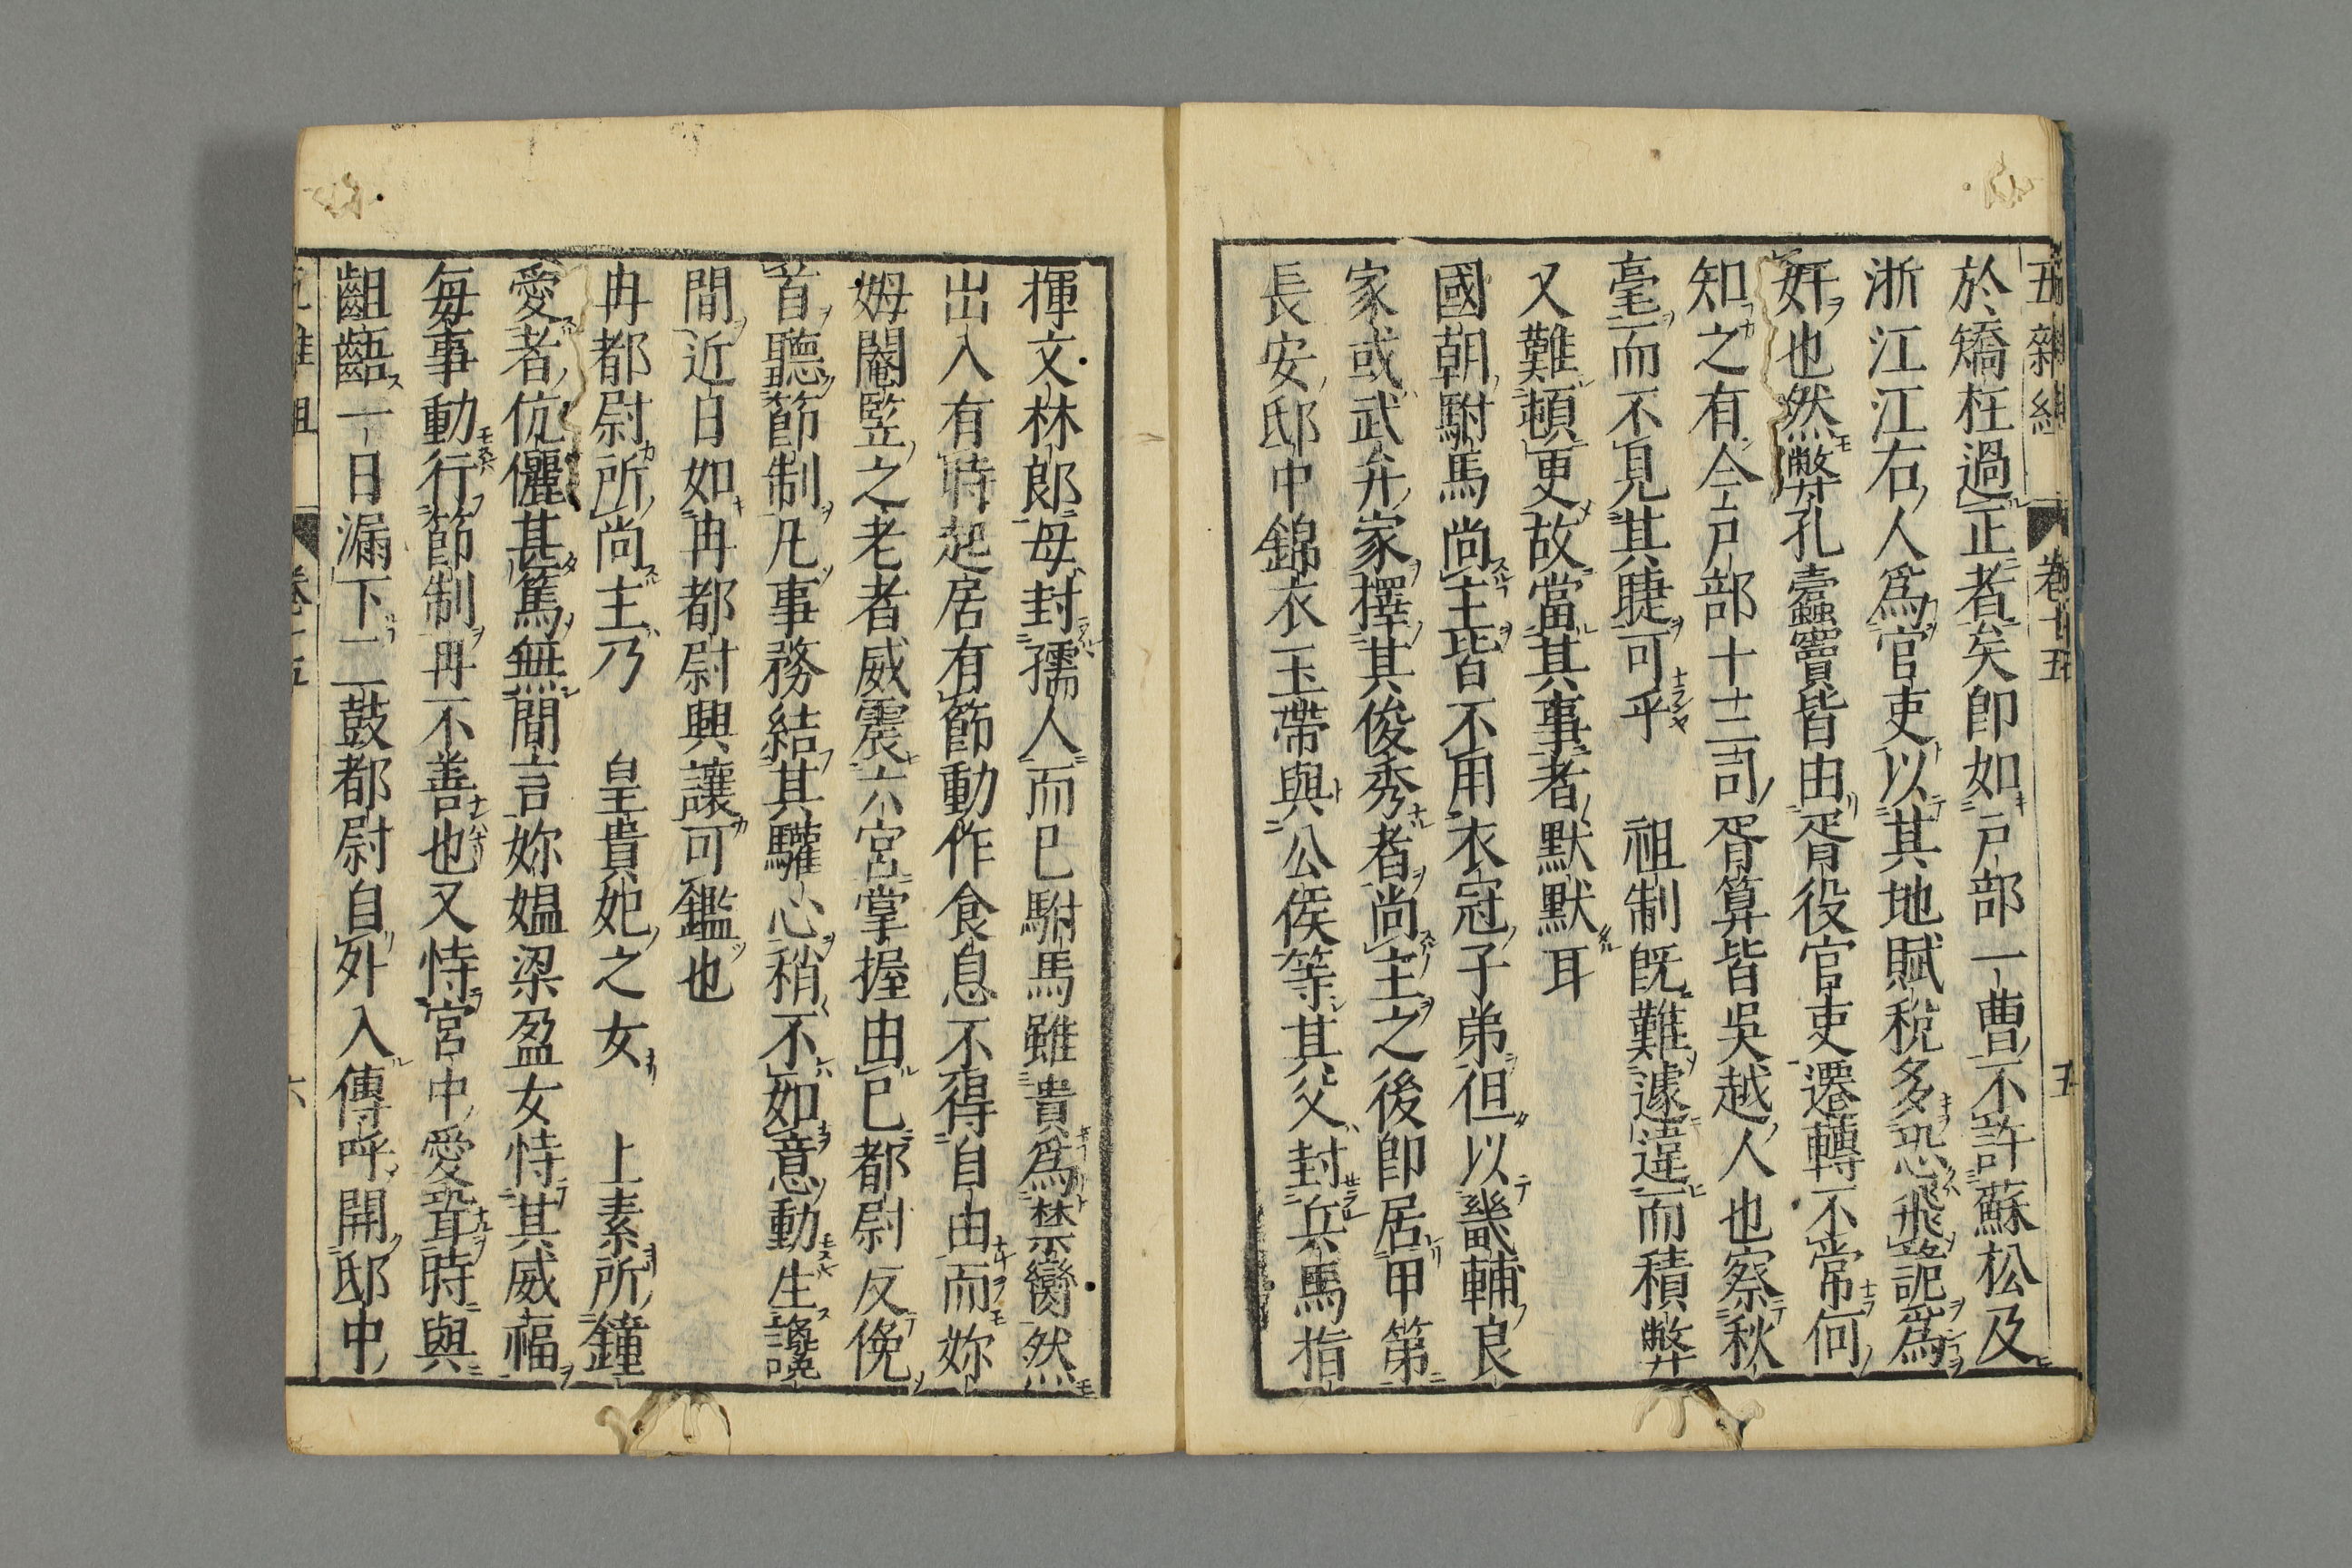 五雜組 卷十五 五
於矯枉過正者矣卽如戸部一曹不許蘇松及
浙江江右人爲官吏以其地賦稅多恐飛詭爲
奸也然弊孔蠹竇皆由胥役官吏遷轉不常何
知之有今戸部十三司胥算皆吳越人也察秋
毫而不見其睫可乎　祖制旣難遽違而積弊
又難頓更故當其事者默默耳
國朝駙馬尚主皆不用衣冠子弟但以畿輔良
家或武弁家擇其俊秀者尚主之後卽居甲第
長安邸中錦衣玉帶與公侯等其父封兵馬指
揮文林郞母封孺人而已駙馬雖貴爲禁臠然
出入有時起居有節動作食息不得自由而妳
姆閹竪之老者威震六宮掌握由已都尉反俛
首聽節制凡事務結其驩心稍不如意動生讒
間近日如冉都尉興讓可鑑也
冉都尉所尚主乃　皇貴妃之女　上素所鐘
愛者伉儷甚篤無間言妳媼梁盈女恃其威福
每事動行節制冉不善也又恃宮中愛聳時與
齟齬一日漏下二鼓都尉自外入傳呼開邸中
卷十五 六